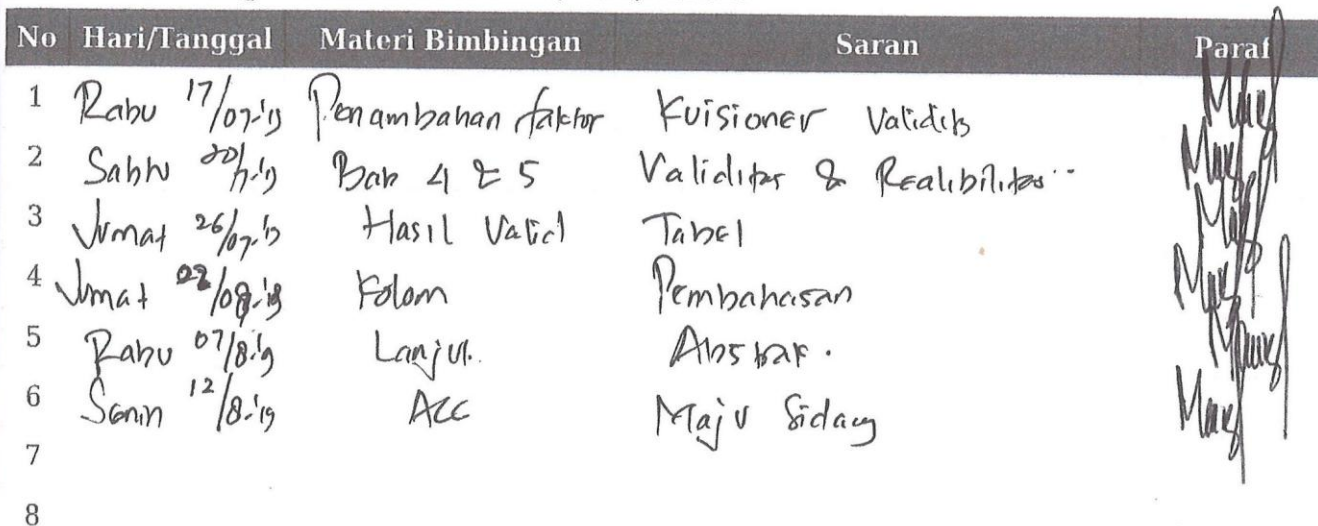 No Hari/Tanggal Materi Bimbingan Saran Paraf
1 Rabu 17/07-'19 Penambahan faktor Kuisioner Validits
2 Sabtu 20/7-'19 Bab 4 & 5 Validitas & Realibilitas
3 Jumat 26/07-'19 Hasil Valid Tabel
4 Jumat 02/08-'19 Kolom Pembahasan
5 Rabu 07/8-'19 Lanjut. Abstrak.
6 Senin 12/8-'19 Acc Maju Sidang
7
8